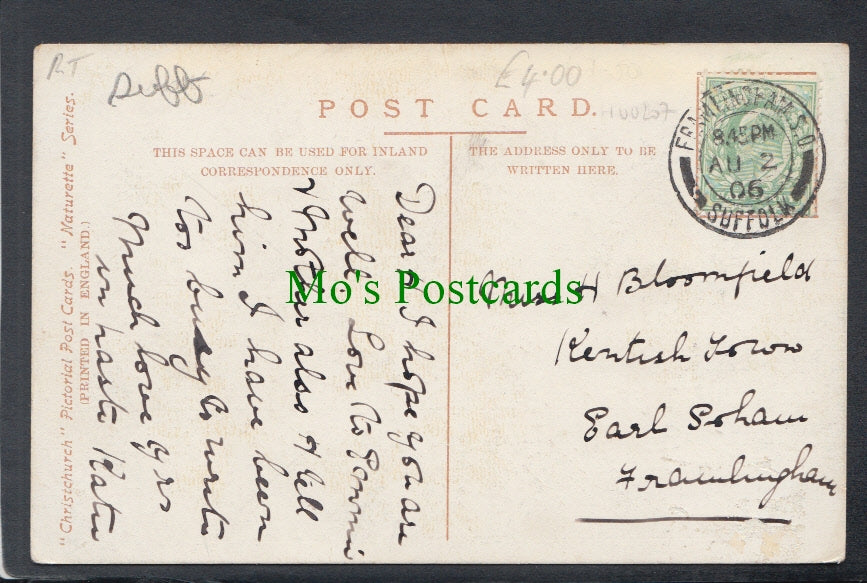 RT
£4.00
H00207
POST CARD.
THIS SPACE CAN BE USED FOR INLAND
CORRESPONDENCE ONLY.
THE ADDRESS ONLY TO BE
WRITTEN HERE.
FRAMLINGHAM S.O
8.45PM
AU 2
06
SUFFOLK
"Christchurch" Pictorial Post Cards. "Naturette" Series.
(PRINTED IN ENGLAND.)
Dear I hope you are
well Love to
also tell
him I have been
too busy to write
Much love yrs
in haste Katie
Mo's Postcards
Miss H Bloomfield
Kentish Town
Earl Soham
Framlingham